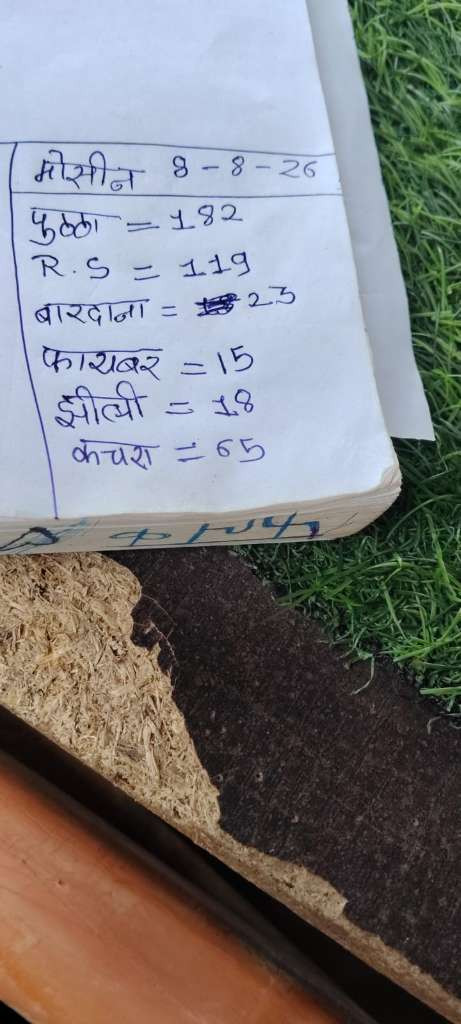 मोसीन 8-8-26
पुठ्ठा = 182
R.S = 119
बारदाना = 23
फायबर = 15
झील्ली = 18
कचरा = 65